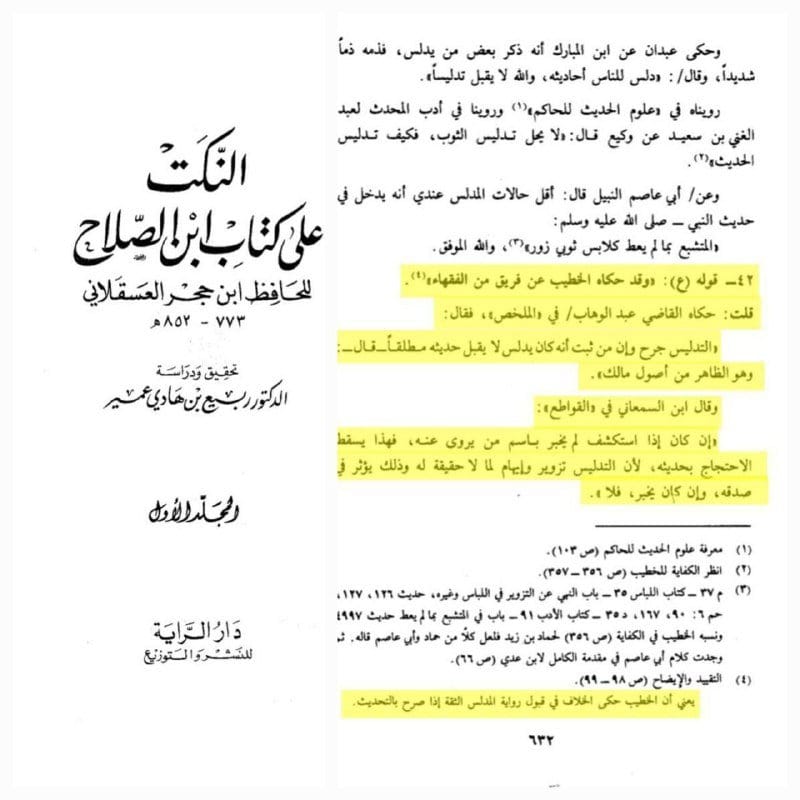 النكت
على كتاب ابن الصلاح
للحافظ ابن حجر العسقلاني
٧٧٣ - ٨٥٢ هـ
تحقيق ودراسة
الدكتور ربيع بن هادي عمير
المجلد الأول
دار الراية
للنشر والتوزيع
وحكى عبدان عن ابن المبارك أنه ذكر بعض من يدلس، فذمه ذماً
شديداً، وقال/: «دلس للناس أحاديثه، والله لا يقبل تدليساً».
رويناه في «علوم الحديث للحاكم»(١) وروينا في أدب المحدث لعبد
الغني بن سعيد عن وكيع قال: «لا يحل تدليس الثوب، فكيف تدليس
الحديث»(٢).
وعن/ أبي عاصم النبيل قال: أقل حالات المدلس عندي أنه يدخل في
حديث النبي ــ صلى الله عليه وسلم:
«المتشبع بما لم يعط كلابس ثوبي زور»(٣)، والله الموفق.
٤٢ــ قوله (ع): «وقد حكاه الخطيب عن فريق من الفقهاء»(٤).
قلت: حكاه القاضي عبد الوهاب/ في «الملخص»، فقال:
«التدليس جرح وإن من ثبت أنه كان يدلس لا يقبل حديثه مطلقاً ــ قال ــ:
وهو الظاهر من أصول مالك».
وقال ابن السمعاني في «القواطع»:
«إن كان إذا استكشف لم يخبر باسم من يروى عنه، فهذا يسقط
الاحتجاج بحديثه، لأن التدليس تزوير وإيهام لما لا حقيقة له وذلك يؤثر في
صدقه، وإن كان يخبر، فلا».
(١) معرفة علوم الحديث للحاكم (ص ١٠٣).
(٢) انظر الكفاية للخطيب (ص ٣٥٦ ــ ٣٥٧).
(٣) م ٣٧ ــ كتاب اللباس ٣٥ ــ باب النهي عن التزوير في اللباس وغيره، حديث ١٢٦، ١٢٧،
حم ٦: ٩٠، ١٦٧، د ٣٥ ــ كتاب الأدب ٩١ ــ باب في المتشبع بما لم يعط حديث ٤٩٩٧
ونسبه الخطيب في الكفاية (ص ٣٥٦) لحماد بن زيد فلعل كلاً من حماد وأبي عاصم قاله. ثم
وجدت كلام أبي عاصم في مقدمة الكامل لابن عدي (ص ٦٦).
(٤) التقييد والإيضاح (ص ٩٨ ــ ٩٩).
يعني أن الخطيب حكى الخلاف في قبول رواية المدلس الثقة إذا صرح بالتحديث.
٦٣٢